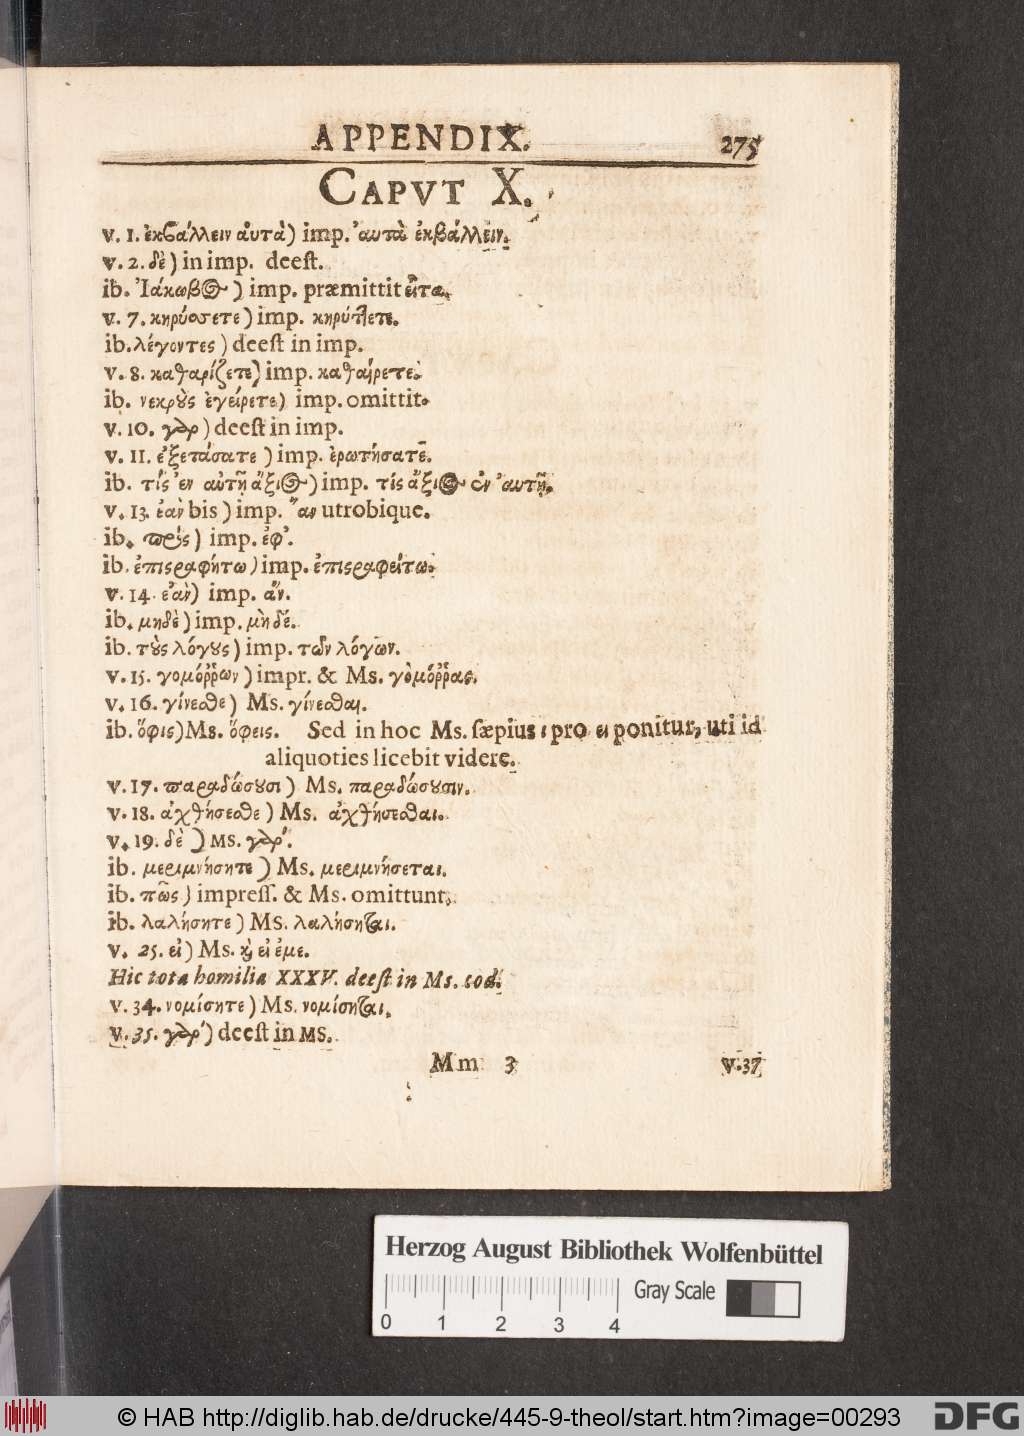 APPENDIX. 275
CAPVT X.
v. 1. ἐκβάλλειν αὐτὰ) imp. αυτὰ ἐκβάλλειν.
v. 2. δὲ) in imp. deest.
ib. Ἰάκωβος) imp. præmittit εἶτα.
v. 7. κηρύσσετε) imp. κηρύττετε.
ib. λέγοντες) deest in imp.
v. 8. καθαρίζετε) imp. καθαίρετε.
ib. νεκροὺς ἐγείρετε) imp. omittit.
v. 10. γὰρ) deest in imp.
v. 11. ἐξετάσατε) imp. ἐρωτήσατε.
ib. τίς ἐν αὐτῇ ἄξιος) imp. τίς ἄξιος ἐν αὐτῇ.
v. 13. ἐὰν bis) imp. ἂν utrobique.
ib. πρὸς) imp. ἐφ'.
ib. ἐπιστραφήτω) imp. ἐπιστραφείτω.
v. 14. ἐὰν) imp. ἄν.
ib. μηδὲ) imp. μὴ δέ.
ib. τοὺς λόγους) imp. τῶν λόγων.
v. 15. γομόῤῥων) impr. & Ms. γομόῤῥας.
v. 16. γίνεσθε) Ms. γίνεσθαι.
ib. ὄφις) Ms. ὄφεις. Sed in hoc Ms. sæpius ι pro ει ponitur, uti id
aliquoties licebit videre.
v. 17. παραδώσουσι) Ms. παραδώσουσιν.
v. 18. ἀχθήσεσθε) Ms. ἀχθήσεσθαι.
v. 19. δὲ) MS. γὰρ.
ib. μεριμνήσητε) Ms. μεριμνήσεται.
ib. πῶς) impress. & Ms. omittunt.
ib. λαλήσητε) Ms. λαλήσηται.
v. 25. εἰ) Ms. καὶ εἰ ἐμε.
Hic tota homilia XXXV. deest in Ms. cod.
v. 34. νομίσητε) Ms. νομίσηται.
v. 35. γὰρ) deest in MS.
Mm 3 v. 37
Herzog August Bibliothek Wolfenbüttel
Gray Scale
0 1 2 3 4
© HAB http://diglib.hab.de/drucke/445-9-theol/start.htm?image=00293 DFG